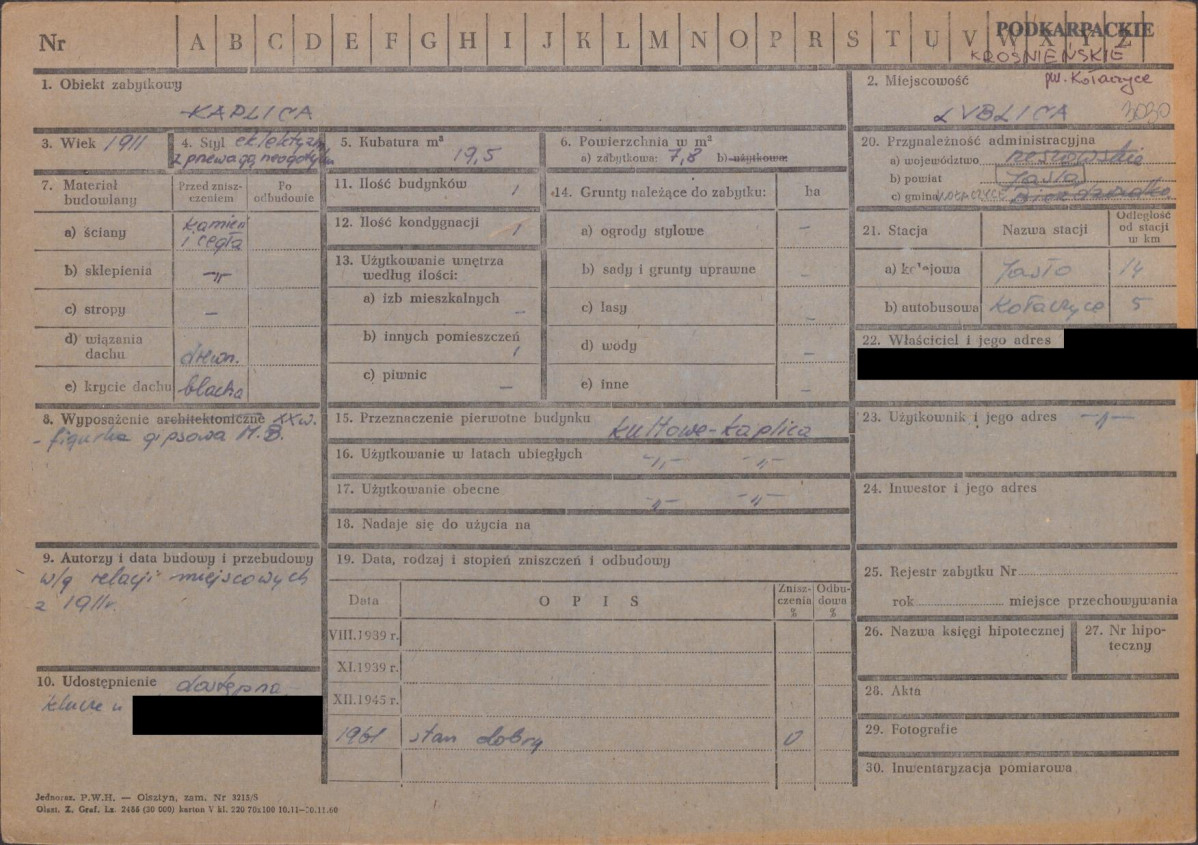 Nr A B C D E F G H I J K L M N O P R S T U V W X Y Z
PODKARPACKIE
KROŚNIEŃSKIE
1. Obiekt zabytkowy
KAPLICA
2. Miejscowość
pw. Kołaczyce
LUBLICA 3030
3. Wiek 1911
4. Styl eklektyzm
z przewagą neogotyku
5. Kubatura m³
19,5
6. Powierzchnia w m²
a) zabytkowa: 7,8 b) użytkowa:
7. Materiał
budowlany
Przed znisz-
czeniem
Po
odbudowie
a) ściany
kamień
i cegła
b) sklepienia -„-
c) stropy -
d) wiązania
dachu drewn.
e) krycie dachu blacha
8. Wyposażenie architektoniczne XX w.
- figurka gipsowa M.B.
9. Autorzy i data budowy i przebudowy
w/g relacji miejscowych
z 1911 r.
10. Udostępnienie dostępna
klucze u
11. Ilość budynków 1
12. Ilość kondygnacji 1
13. Użytkowanie wnętrza
według ilości:
a) izb mieszkalnych -
b) innych pomieszczeń 1
c) piwnic -
14. Grunty należące do zabytku: ha
a) ogrody stylowe -
b) sady i grunty uprawne -
c) lasy -
d) wody -
e) inne -
15. Przeznaczenie pierwotne budynku kultowe-kaplica
16. Użytkowanie w latach ubiegłych -„- -„-
17. Użytkowanie obecne -„- -„-
18. Nadaje się do użycia na
19. Data, rodzaj i stopień zniszczeń i odbudowy
Data
OPIS
Znisz-
czenia
%
Odbu-
dowa
%
VIII.1939 r.
XI.1939 r.
XII.1945 r.
1961 stan dobry 0
20. Przynależność administracyjna
a) województwo rzeszowskie
b) powiat Jasło
c) gmina
21. Stacja
Nazwa stacji
Odległość
od stacji
w km
a) kolejowa Jasło 14
b) autobusowa Kołaczyce 5
22. Właściciel i jego adres
23. Użytkownik i jego adres -„-
24. Inwestor i jego adres
25. Rejestr zabytku Nr
rok miejsce przechowywania
26. Nazwa księgi hipotecznej
27. Nr hipo-
teczny
28. Akta
29. Fotografie
30. Inwentaryzacja pomiarowa
Jednoraz. P.W.H. — Olsztyn, zam. Nr 3215/S
Olszt. Z. Graf. Lz. 2466 (30 000) karton V kl. 220 70x100 10.11—30.11.60